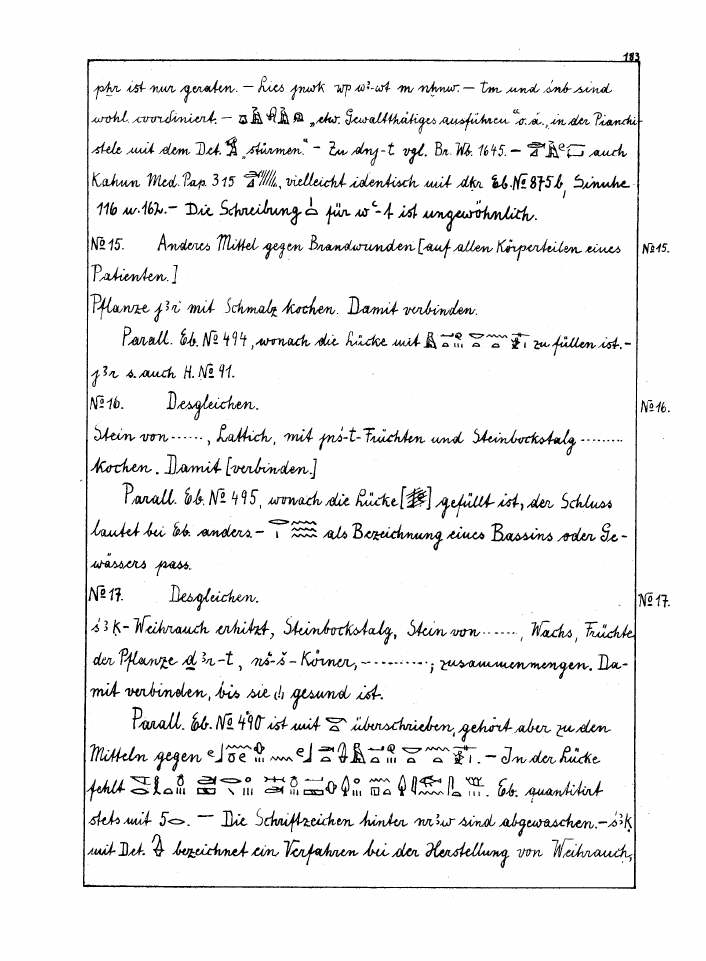 183
pḥr ist nur geraten. — Lies jnwk wp wꜣ-wt m nhnw. — tm und śnb sind
wohl coordiniert. — „etw. Gewaltthätiges ausführen“ o. ä., in der Pianchi-
stele mit dem Det. „stürmen.“ — Zu dnj-t vgl. Br. Wb. 1645. — auch
Kahun Med. Pap. 315, vielleicht identisch mit dkr Eb. № 875b, Sinuhe
116 u. 162. — Die Schreibung für wꜥ-t ist ungewöhnlich.
№ 15. Anderes Mittel gegen Brandwunden [auf allen Körperteilen eines № 15.
Patienten.]
Pflanze jꜣr mit Schmalz kochen. Damit verbinden.
Parall. Eb. № 494, wonach die Lücke mit zu füllen ist. —
jꜣr s. auch H. № 91.
№ 16. Desgleichen. № 16.
Stein von ......, Lattich, mit jnś-t-Früchten und Steinbockstalg ........
kochen. Damit [verbinden.]
Parall. Eb. № 495, wonach die Lücke [ ] gefüllt ist, der Schluss
lautet bei Eb. anders. — als Bezeichnung eines Bassins oder Ge-
wässers pass.
№ 17. Desgleichen. № 17.
śꜣḳ-Weihrauch erhitzt, Steinbockstalg, Stein von ......, Wachs, Früchte
der Pflanze ḏꜣr-t, nš-š-Körner, ..........; zusammenmengen. Da-
mit verbinden, bis sie gesund ist.
Parall. Eb. № 490 ist mit überschrieben, gehört aber zu den
Mitteln gegen . — In der Lücke
fehlt . Eb. quantitirt
stets mit 5. — Die Schriftzeichen hinter nrꜣw sind abgewaschen. — śꜣḳ
mit Det. bezeichnet ein Verfahren bei der Herstellung von Weihrauch,